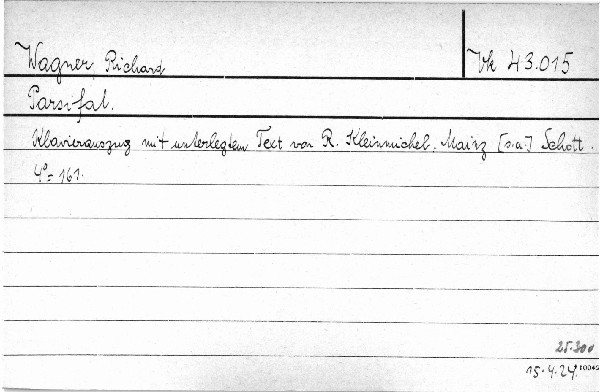 Wagner, Richard
Vk 43.015
Parsifal.
Klavierauszug mit unterlegtem Text von R. Kleinmichel. Mainz [s.a.] Schott.
4° = 161.
25.300
15.4.24.
10042